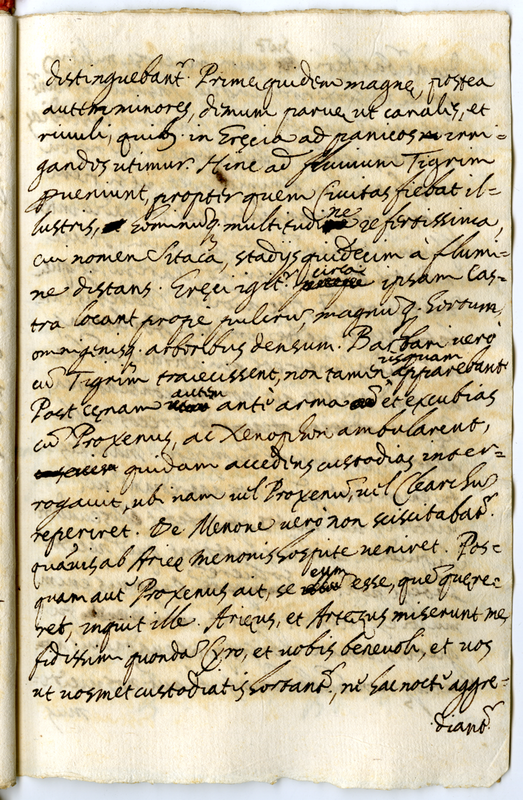 distinguebant^r. Primę quidem magnę, postea
autem minores, dimum parvę ut canalis, et
rivuli, quib₉ in Gręcia ad panicos irri-
gandos utimur. Hinc ad fluvium Tigrim
pveniunt, propter quem Civitas fiebat il-
lustris, hominuq₃ multitudine refertissima,
cui nomen Sitaca, stadijs quindecim à flumi-
ne distans. Gręci igit^r circa ipsam Cas-
tra locant prope pulcrũ, magnuq₃ hortum,
omnigenisq₃ arboribus densum. Barbari verò
cũ Tigrim traiecissent, non tamen usquam apparebant.
Post cęnam autem antè arma et excubias
cũ Proxenus, ac Xenophon ambularent,
quidam accedens custodias inter-
rogavit, ubi nam vel Proxenũ, vel Clearchũ
reperiret. De Menone verò non sciscitabat^r.
quãvis ab Arięo Menonis hospite veniret. Pos-
quam autẽ Proxenus ait, se eum esse, quẽ quęre-
ret, inquit ille. Arięus, et Artęzus miserunt me,
fidissimi quondã Cyro, et vobis benevoli, et vos
ut vosmet custodiatis hortant^r, nè hac noctè aggre-
diant^r.